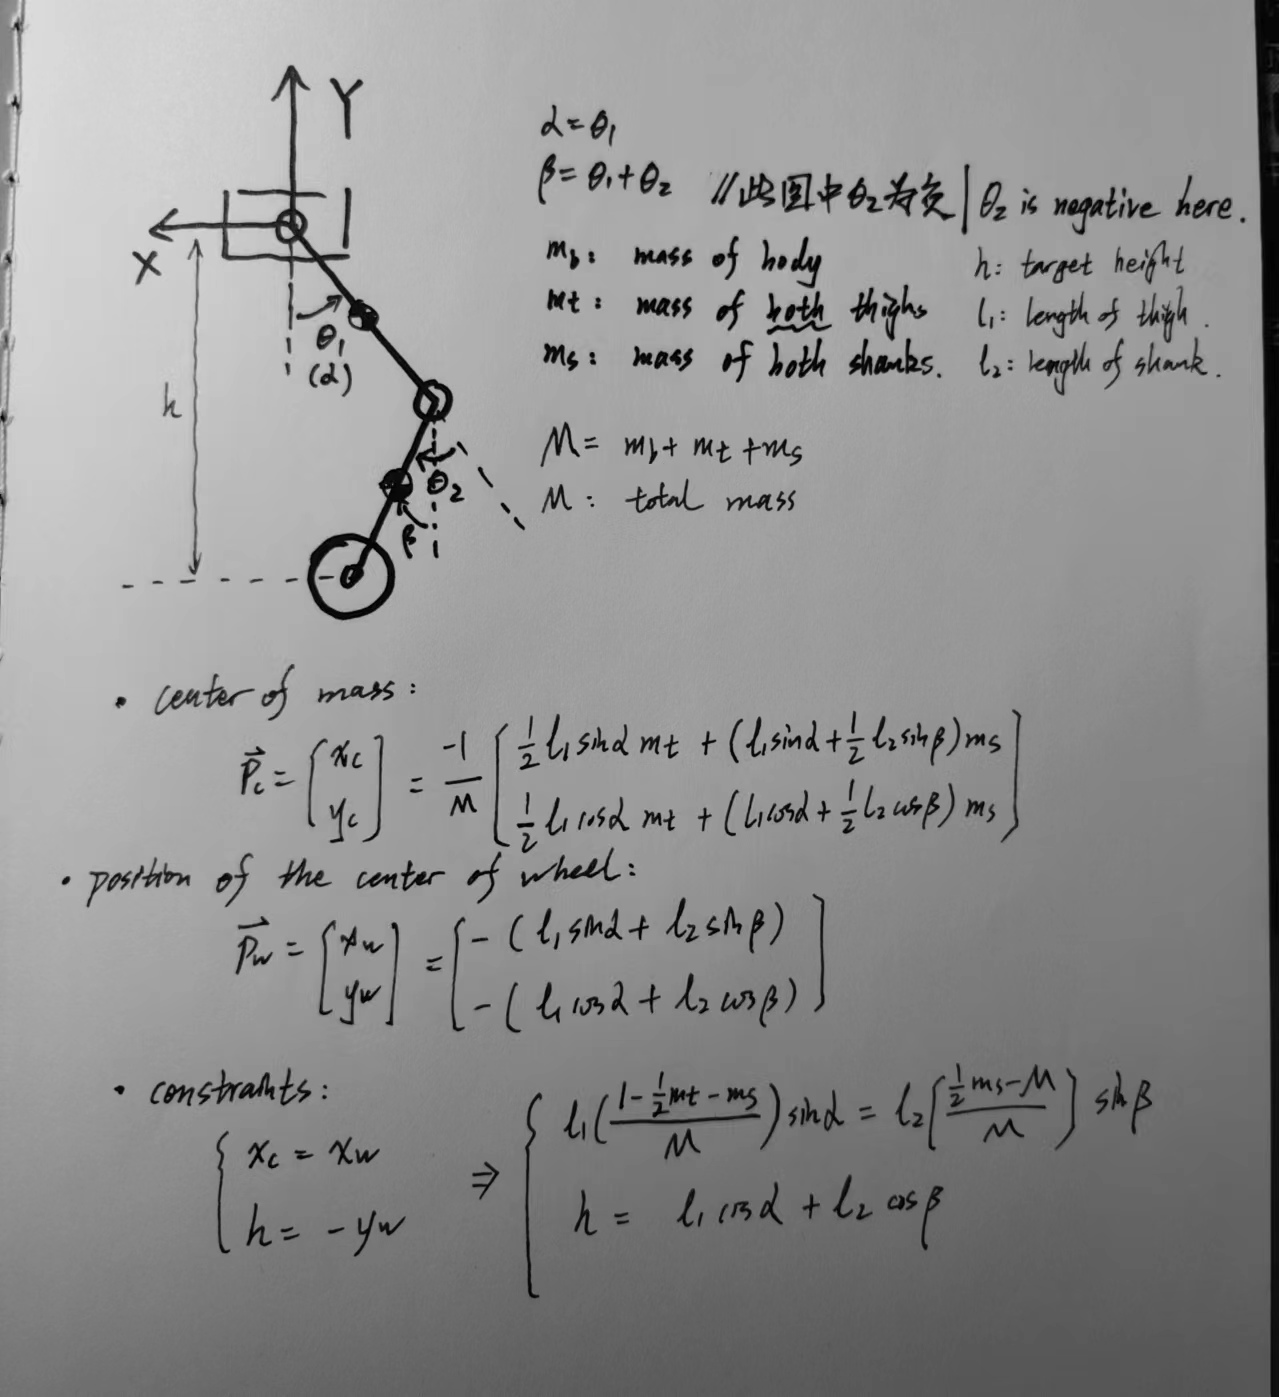 Y
X
h
θ₁
(α)
θ₂
β
α = θ₁
β = θ₁ + θ₂ //此图中θ₂为负 | θ₂ is negative here.
m_b: mass of body h: target height
m_t: mass of both thighs l₁: length of thigh.
m_s: mass of both shanks. l₂: length of shank.
M = m_b + m_t + m_s
M: total mass
• center of mass:
P⃗_c = [x_c; y_c] = -1/M [½ l₁ sinα m_t + (l₁ sinα + ½ l₂ sinβ) m_s; ½ l₁ cosα m_t + (l₁ cosα + ½ l₂ cosβ) m_s]
• position of the center of wheel:
P⃗_w = [x_w; y_w] = [-(l₁ sinα + l₂ sinβ); -(l₁ cosα + l₂ cosβ)]
• constraints:
{x_c = x_w; h = -y_w ⇒ {l₁((1 - ½m_t - m_s)/M) sinα = l₂[(½m_s - M)/M] sinβ; h = l₁ cosα + l₂ cosβ